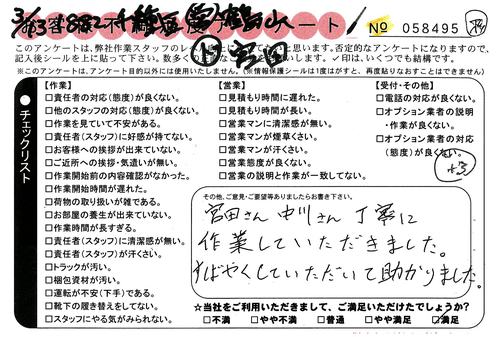 お客様不満足度アンケート
№ 058495
このアンケートは、弊社作業スタッフのレ
思います。否定的なアンケートになりますので、
記入後シールを上に貼って下さい。数多く
✓印は、いくつでも結構です。
※このアンケートは、アンケート目的以外には使用いたしません。(※情報保護シールは1度がはがすと、再度貼りなおすことができません。)
宮田
●チェックリスト
【作業】
□責任者の対応(態度)が良くない。
□他のスタッフの対応(態度)が良くない。
□作業を見ていて不安がある。
□責任者(スタッフ)に好感が持てない。
□お客様への挨拶が出来ていない。
□ご近所への挨拶・気遣いが無い。
□作業開始前の内容確認がなかった。
□作業開始時間が遅れた。
□荷物の取り扱いが雑である。
□お部屋の養生が出来ていない。
□作業時間が長すぎる。
□責任者(スタッフ)に清潔感が無い。
□責任者(スタッフ)が汗くさい。
□トラックが汚い。
□梱包資材が汚い。
□運転が不安(下手)である。
□靴下の履き替えをしてない。
□スタッフにやる気がみられない。
【営業】
□見積もり時間に遅れた。
□見積もり時間が長い。
□営業マンに清潔感が無い。
□営業マンが煙草くさい。
□営業マンが汗くさい。
□営業態度が良くない。
□営業の説明と作業が一致してない。
【受付・その他】
□電話の対応が良くない。
□オプション業者の説明
・作業が良くない。
□オプション業者の対応
(態度)が良くない。
その他、ご意見・ご要望等ありましたらお書き下さい。
宮田さん 中川さん 丁寧に
作業していただきました。
すばやくしていただいて助かりました。
☆当社をご利用いただきまして、ご満足いただけたでしょうか?
□不満 □やや不満 □普通 □やや満足 ☑満足